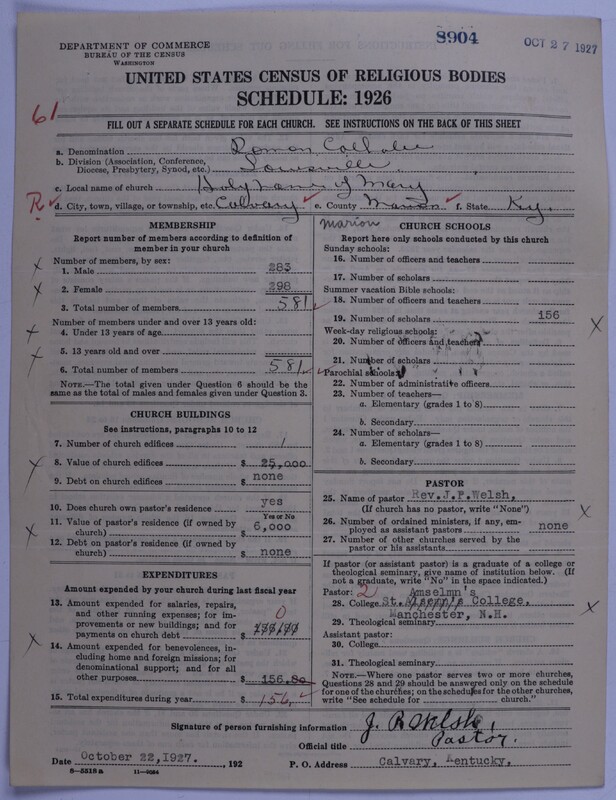 8904
OCT 27 1927
DEPARTMENT OF COMMERCE
BUREAU OF THE CENSUS
WASHINGTON
UNITED STATES CENSUS OF RELIGIOUS BODIES
SCHEDULE: 1926
61
FILL OUT A SEPARATE SCHEDULE FOR EACH CHURCH. SEE INSTRUCTIONS ON THE BACK OF THIS SHEET
a. Denomination Roman Catholic
b. Division (Association, Conference, Diocese, Presbytery, Synod, etc.) Louisville
c. Local name of church Holy Name of Mary
R d. City, town, village, or township, etc. Calvary e. County Marion f. State Ky.
Marion
MEMBERSHIP
Report number of members according to definition of member in your church
Number of members, by sex:
1. Male 283
2. Female 298
3. Total number of members 581
Number of members under and over 13 years old:
4. Under 13 years of age
5. 13 years old and over
6. Total number of members 581
NOTE.—The total given under Question 6 should be the same as the total of males and females given under Question 3.
CHURCH BUILDINGS
See instructions, paragraphs 10 to 12
7. Number of church edifices 1
8. Value of church edifices $ 25,000
9. Debt on church edifices $ none
10. Does church own pastor's residence yes
Yes or No
11. Value of pastor's residence (if owned by church) $ 6,000
12. Debt on pastor's residence (if owned by church) $ none
EXPENDITURES
Amount expended by your church during last fiscal year
13. Amount expended for salaries, repairs, and other running expenses; for improvements or new buildings; and for payments on church debt $ 0
14. Amount expended for benevolences, including home and foreign missions; for denominational support; and for all other purposes $ 156.80
15. Total expenditures during year $ 156
CHURCH SCHOOLS
Report here only schools conducted by this church
Sunday schools:
16. Number of officers and teachers
17. Number of scholars
Summer vacation Bible schools:
18. Number of officers and teachers
19. Number of scholars 156
Week-day religious schools:
20. Number of officers and teachers
21. Number of scholars
Parochial schools:
22. Number of administrative officers
23. Number of teachers—
a. Elementary (grades 1 to 8)
b. Secondary
24. Number of scholars—
a. Elementary (grades 1 to 8)
b. Secondary
PASTOR
25. Name of pastor Rev.J.P.Welsh,
(If church has no pastor, write "None")
26. Number of ordained ministers, if any, employed as assistant pastors none
27. Number of other churches served by the pastor or his assistants
If pastor (or assistant pastor) is a graduate of a college or theological seminary, give name of institution below. (If not a graduate, write "No" in the space indicated.)
Pastor: 2 Amselmn's
28. College St. College,
Manchester, N.H.
29. Theological seminary
Assistant pastor:
30. College
31. Theological seminary
NOTE.—Where one pastor serves two or more churches, Questions 28 and 29 should be answered only on the schedule for one of the churches; on the schedules for the other churches, write "See schedule for church."
Signature of person furnishing information J. P. Welsh,
Official title Pastor.
Date October 22,1927. , 192
P. O. Address Calvary, Kentucky,
8—5518a 11—9094